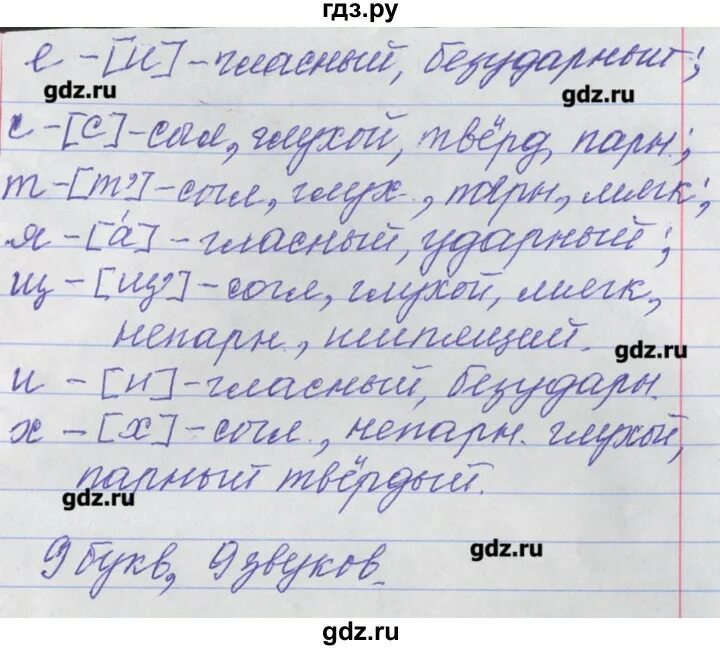 гдз.ру
е – [и] – гласный, безударный;
gdz.ru
gdz.ru
с – [с] – согл, глухой, твёрд, парн.;
т – [т'] – согл, глух., парн, мягк;
я – [á] – гласный, ударный;
щ – [щ'] – согл, глухой, мягк,
непарн., шипящий.
gdz.ru
и – [и] – гласный, безударн.
х – [х] – согл., непарн. глухой,
парный твёрдый.
gdz.ru
9 букв, 9 звуков.
gdz.ru
gdz.ru